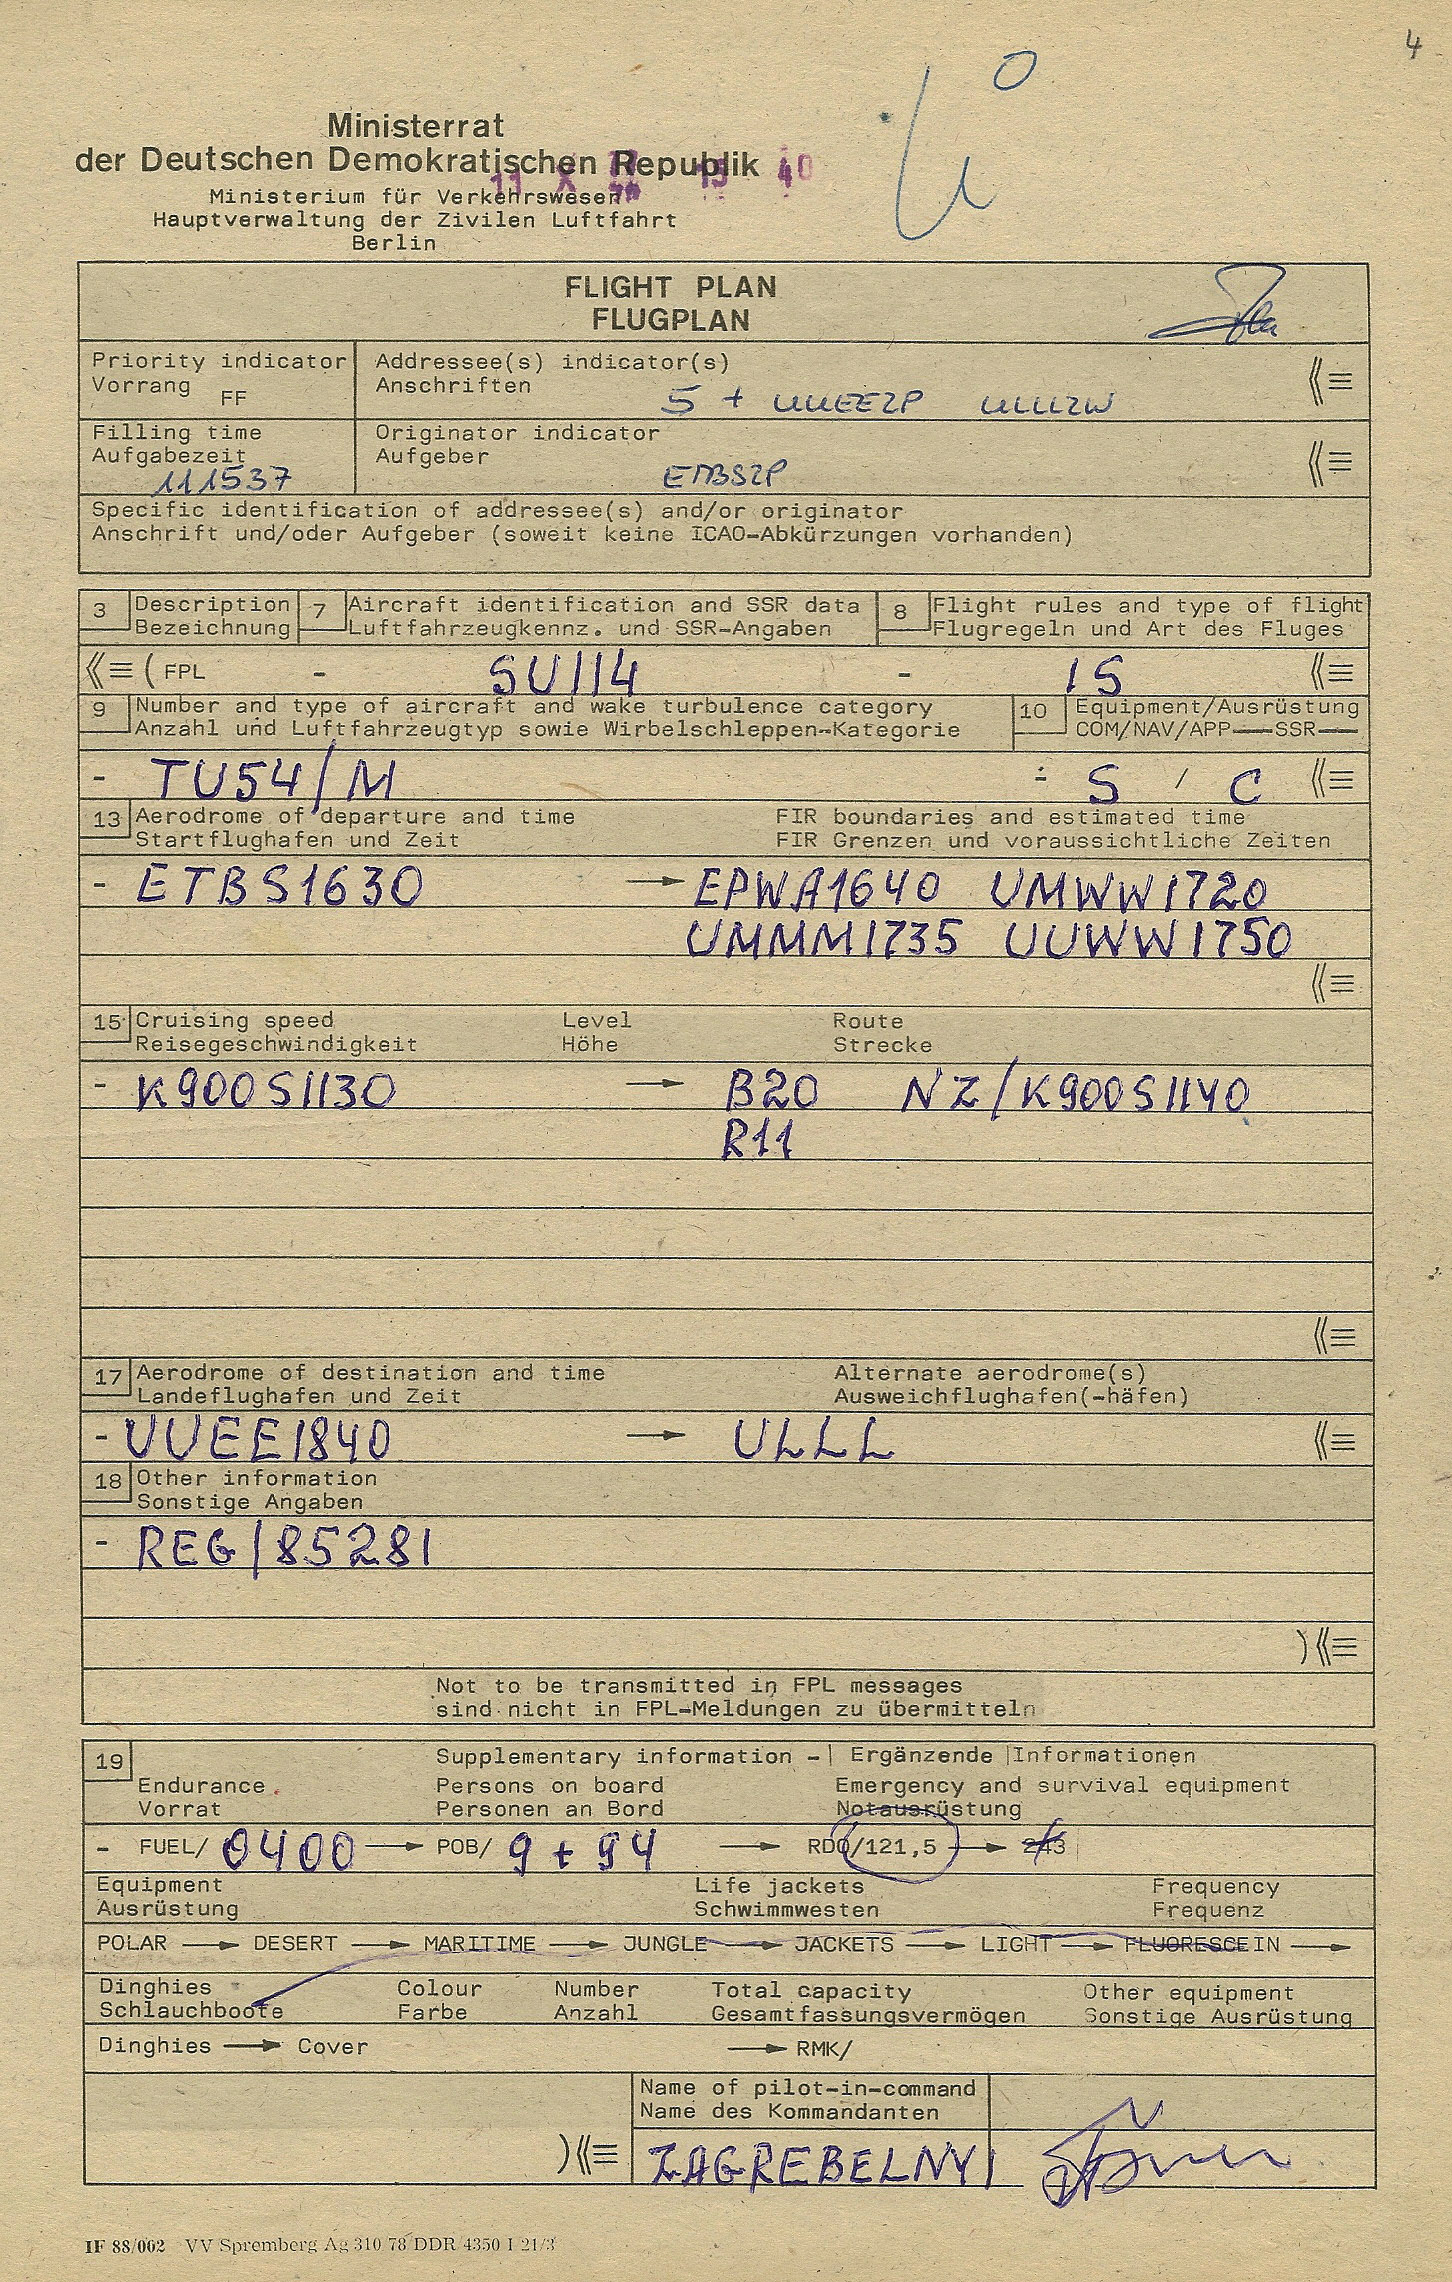 4
Ministerrat
der Deutschen Demokratischen Republik
11 X 15 40
Ministerium für Verkehrswesen
Hauptverwaltung der Zivilen Luftfahrt
Berlin
FLIGHT PLAN
FLUGPLAN
Priority indicator Addressee(s) indicator(s)
Vorrang FF Anschriften 5 + UUEEZP UUUZW ⟪≡
Filling time Originator indicator
Aufgabezeit Aufgeber ⟪≡
111537 ETBSZP
Specific identification of addressee(s) and/or originator
Anschrift und/oder Aufgeber (soweit keine ICAO-Abkürzungen vorhanden)
3 Description 7 Aircraft identification and SSR data 8 Flight rules and type of flight
Bezeichnung Luftfahrzeugkennz. und SSR-Angaben Flugregeln und Art des Fluges
⟪≡ (FPL - SU114 - IS ⟪≡
9 Number and type of aircraft and wake turbulence category 10 Equipment/Ausrüstung
Anzahl und Luftfahrzeugtyp sowie Wirbelschleppen-Kategorie COM/NAV/APP——SSR—
- TU54/M - S / C ⟪≡
13 Aerodrome of departure and time FIR boundaries and estimated time
Startflughafen und Zeit FIR Grenzen und voraussichtliche Zeiten
- ETBS1630 → EPWA1640 UMWW1720
UMMM1735 UUWW1750
⟪≡
15 Cruising speed Level Route
Reisegeschwindigkeit Höhe Strecke
- K900S1130 → B20 NZ/K900S1140
R11
⟪≡
17 Aerodrome of destination and time Alternate aerodrome(s)
Landeflughafen und Zeit Ausweichflughafen(-häfen)
- UUEE1840 → ULLL ⟪≡
18 Other information
Sonstige Angaben
- REG/85281
)⟪≡
Not to be transmitted in FPL messages
sind nicht in FPL-Meldungen zu übermitteln
19 Supplementary information - Ergänzende Informationen
Endurance Persons on board Emergency and survival equipment
Vorrat Personen an Bord Notausrüstung
- FUEL/ 0400 → POB/ 9 + 94 → RDO/121,5 → 243
Equipment Life jackets Frequency
Ausrüstung Schwimmwesten Frequenz
POLAR → DESERT → MARITIME → JUNGLE → JACKETS → LIGHT → FLUORESCEIN →
Dinghies Colour Number Total capacity Other equipment
Schlauchboote Farbe Anzahl Gesamtfassungsvermögen Sonstige Ausrüstung
Dinghies → Cover → RMK/
Name of pilot-in-command
Name des Kommandanten
)⟪≡ ZAGREBELNYI
IF 88/002 VV Spremberg Ag 310 78 DDR 4350 I 21/3